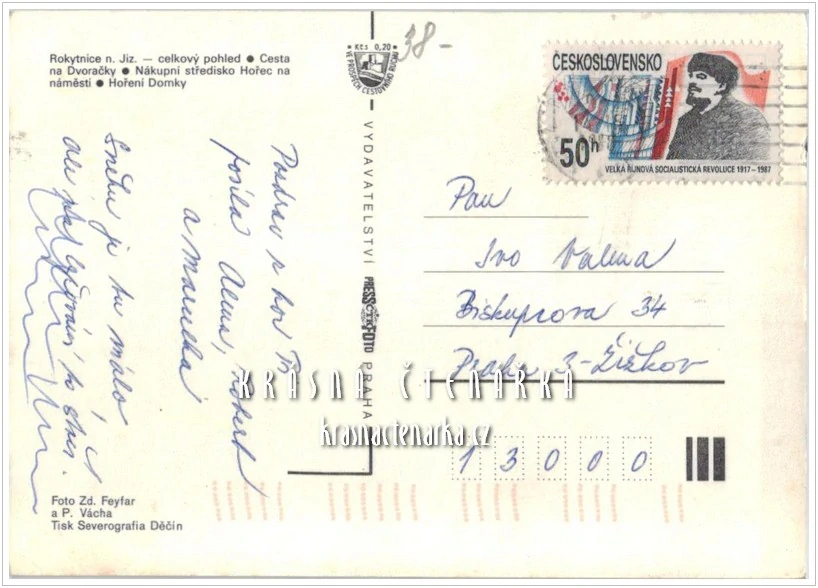 Rokytnice n. Jiz. — celkový pohled ● Cesta
na Dvoračky ● Nákupní středisko Hořec na
náměstí ● Hoření Domky
Kčs 0,20
VE PROSPĚCH CESTOVNÍHO RUCHU
38-
ČESKOSLOVENSKO
50h
VELKÁ ŘÍJNOVÁ SOCIALISTICKÁ REVOLUCE 1917–1987
Pozdrav z hor Ti
posílá Alena, Robert
a Maruška
Sněhu je tu málo
ale
VYDAVATELSTVÍ PRESSFOTO PRAHA
Pan
Ivo Valma
Biskupcova 34
Praha 3-Žižkov
13000
KRÁSNÁ ČTENÁŘKA
krasnactenarka.cz
Foto Zd. Feyfar
a P. Vácha
Tisk Severografia Děčín